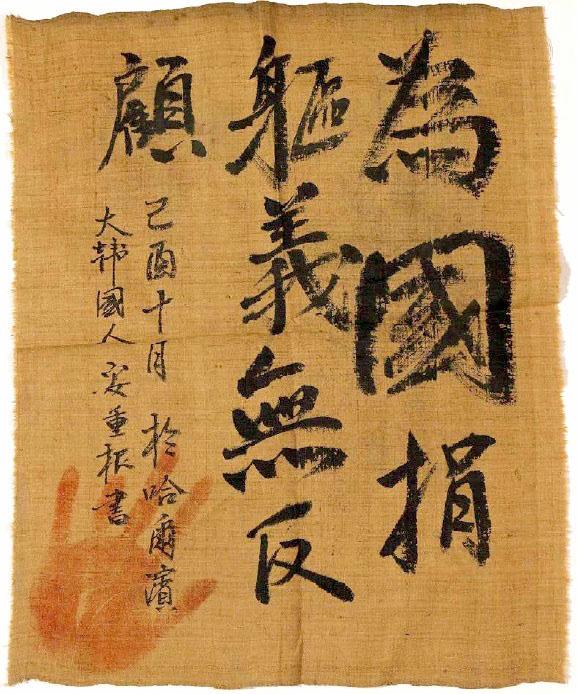 為國捐
軀義無反
顧
己酉十月 於哈爾濱
大韓國人 安重根書